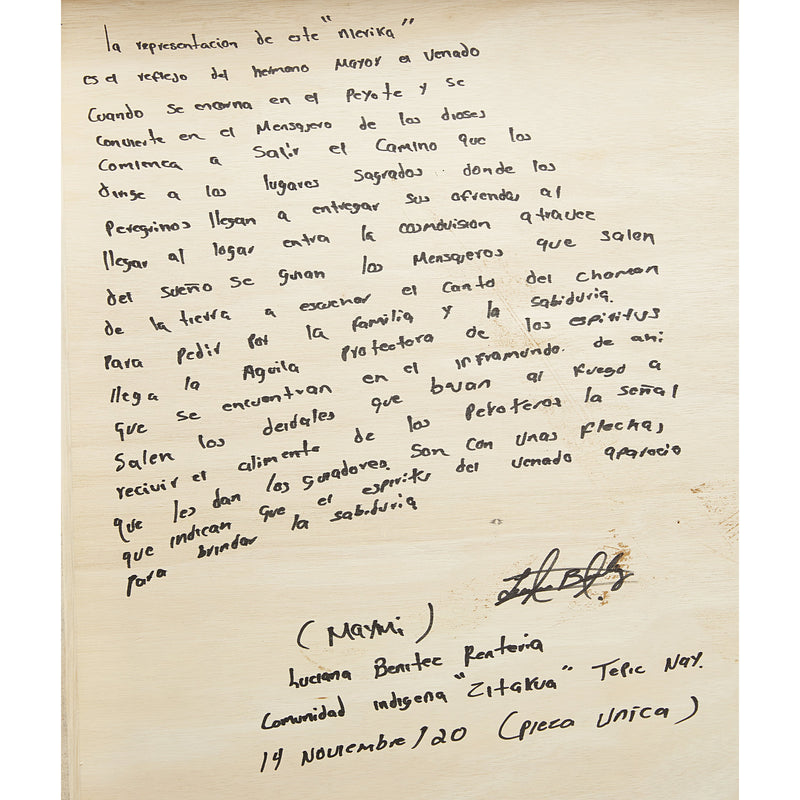 la representacion de este "Nierika"
es el reflejo del hermano Mayor el Venado
Cuando se encarna en el Peyote y se
convierte en el Mensajero de los dioses
Comienca a Salir el Camino que los
dirige a los lugares Sagrados donde los
Peregrinos llegan a entregar sus ofrendas al
llegar al logar entra la cosmovision atravec
del sueño se guian los Mensajeros que salen
de la tierra a escuchar el canto del chaman
Para Pedir Por la familia y la sabiduria.
llega la Aguila Protectora de los espiritus
que se encuentran en el inframundo. de ahi
Salen los deidales que bajan al fuego a
recivir el alimento de los Peyoteros la señal
que les dan los guiadores. Son con unas flechas
que indican que el espiritu del venado aparecio
Para brindar la sabiduria
(MayMi)
Luciana Benitec Renteria
Comunidad indigena "Zitakua" Tepic Nay.
14 Noviembre/20 (pieza Unica)